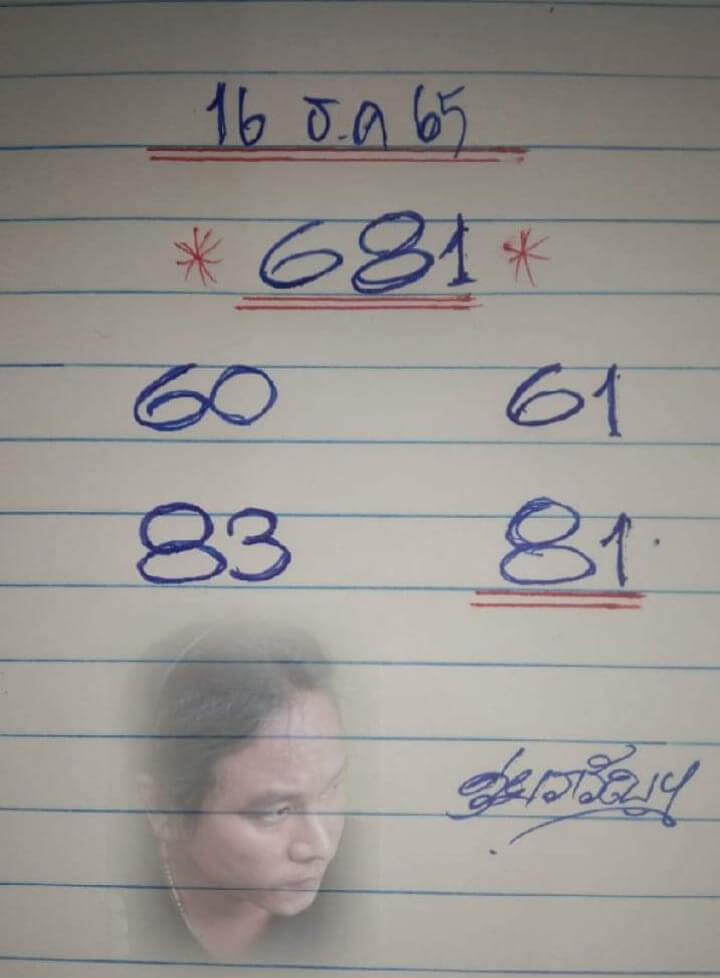 16 ธ.ค 65
* 681 *
60 61
83 81